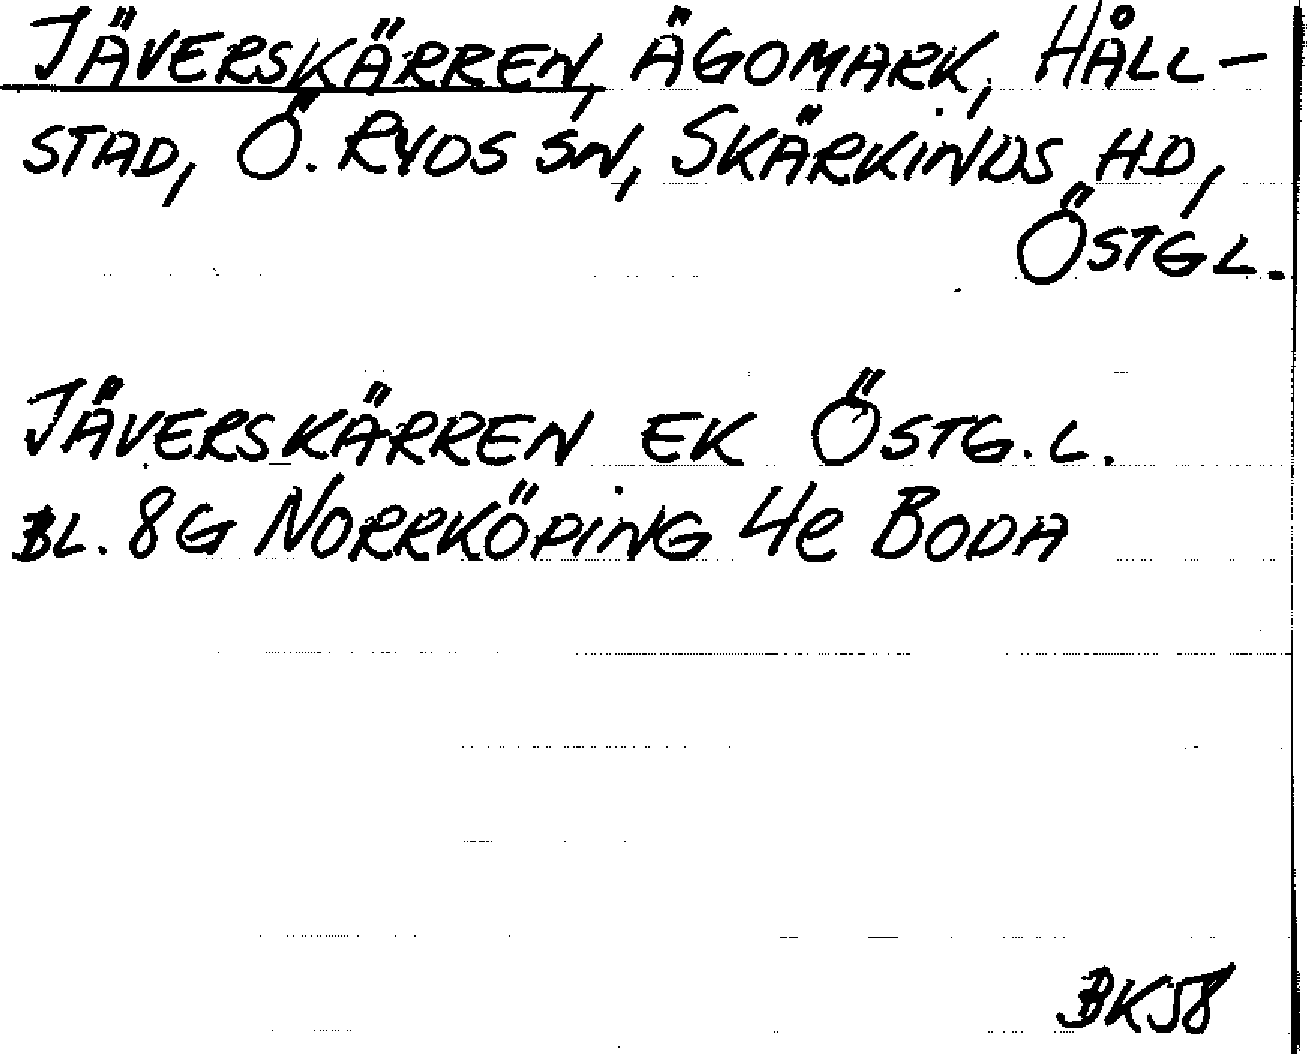 JÄVERSKÄRREN, ÄGOMARK, HÅLL-
STAD, Ö. RYDS SN, SKÄRKINDS HD,
ÖSTGL.
JÄVERSKÄRREN EK ÖSTG.L.
BL. 8G NORRKÖPING 4e BODA
BK58